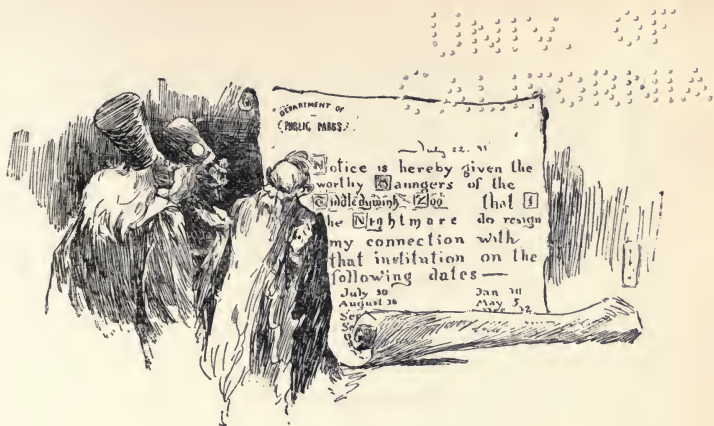 UNIV. OF
CALIFORNIA
DEPARTMENT OF
PUBLIC PARKS.
July 22. 91
Notice is hereby given the
worthy Manngers of the
Tiddledywink Zoo that I
he Nightmare do resign
my connection with
that institution on the
following dates—
July 30 Jan 30
August 26 May 5
Sep